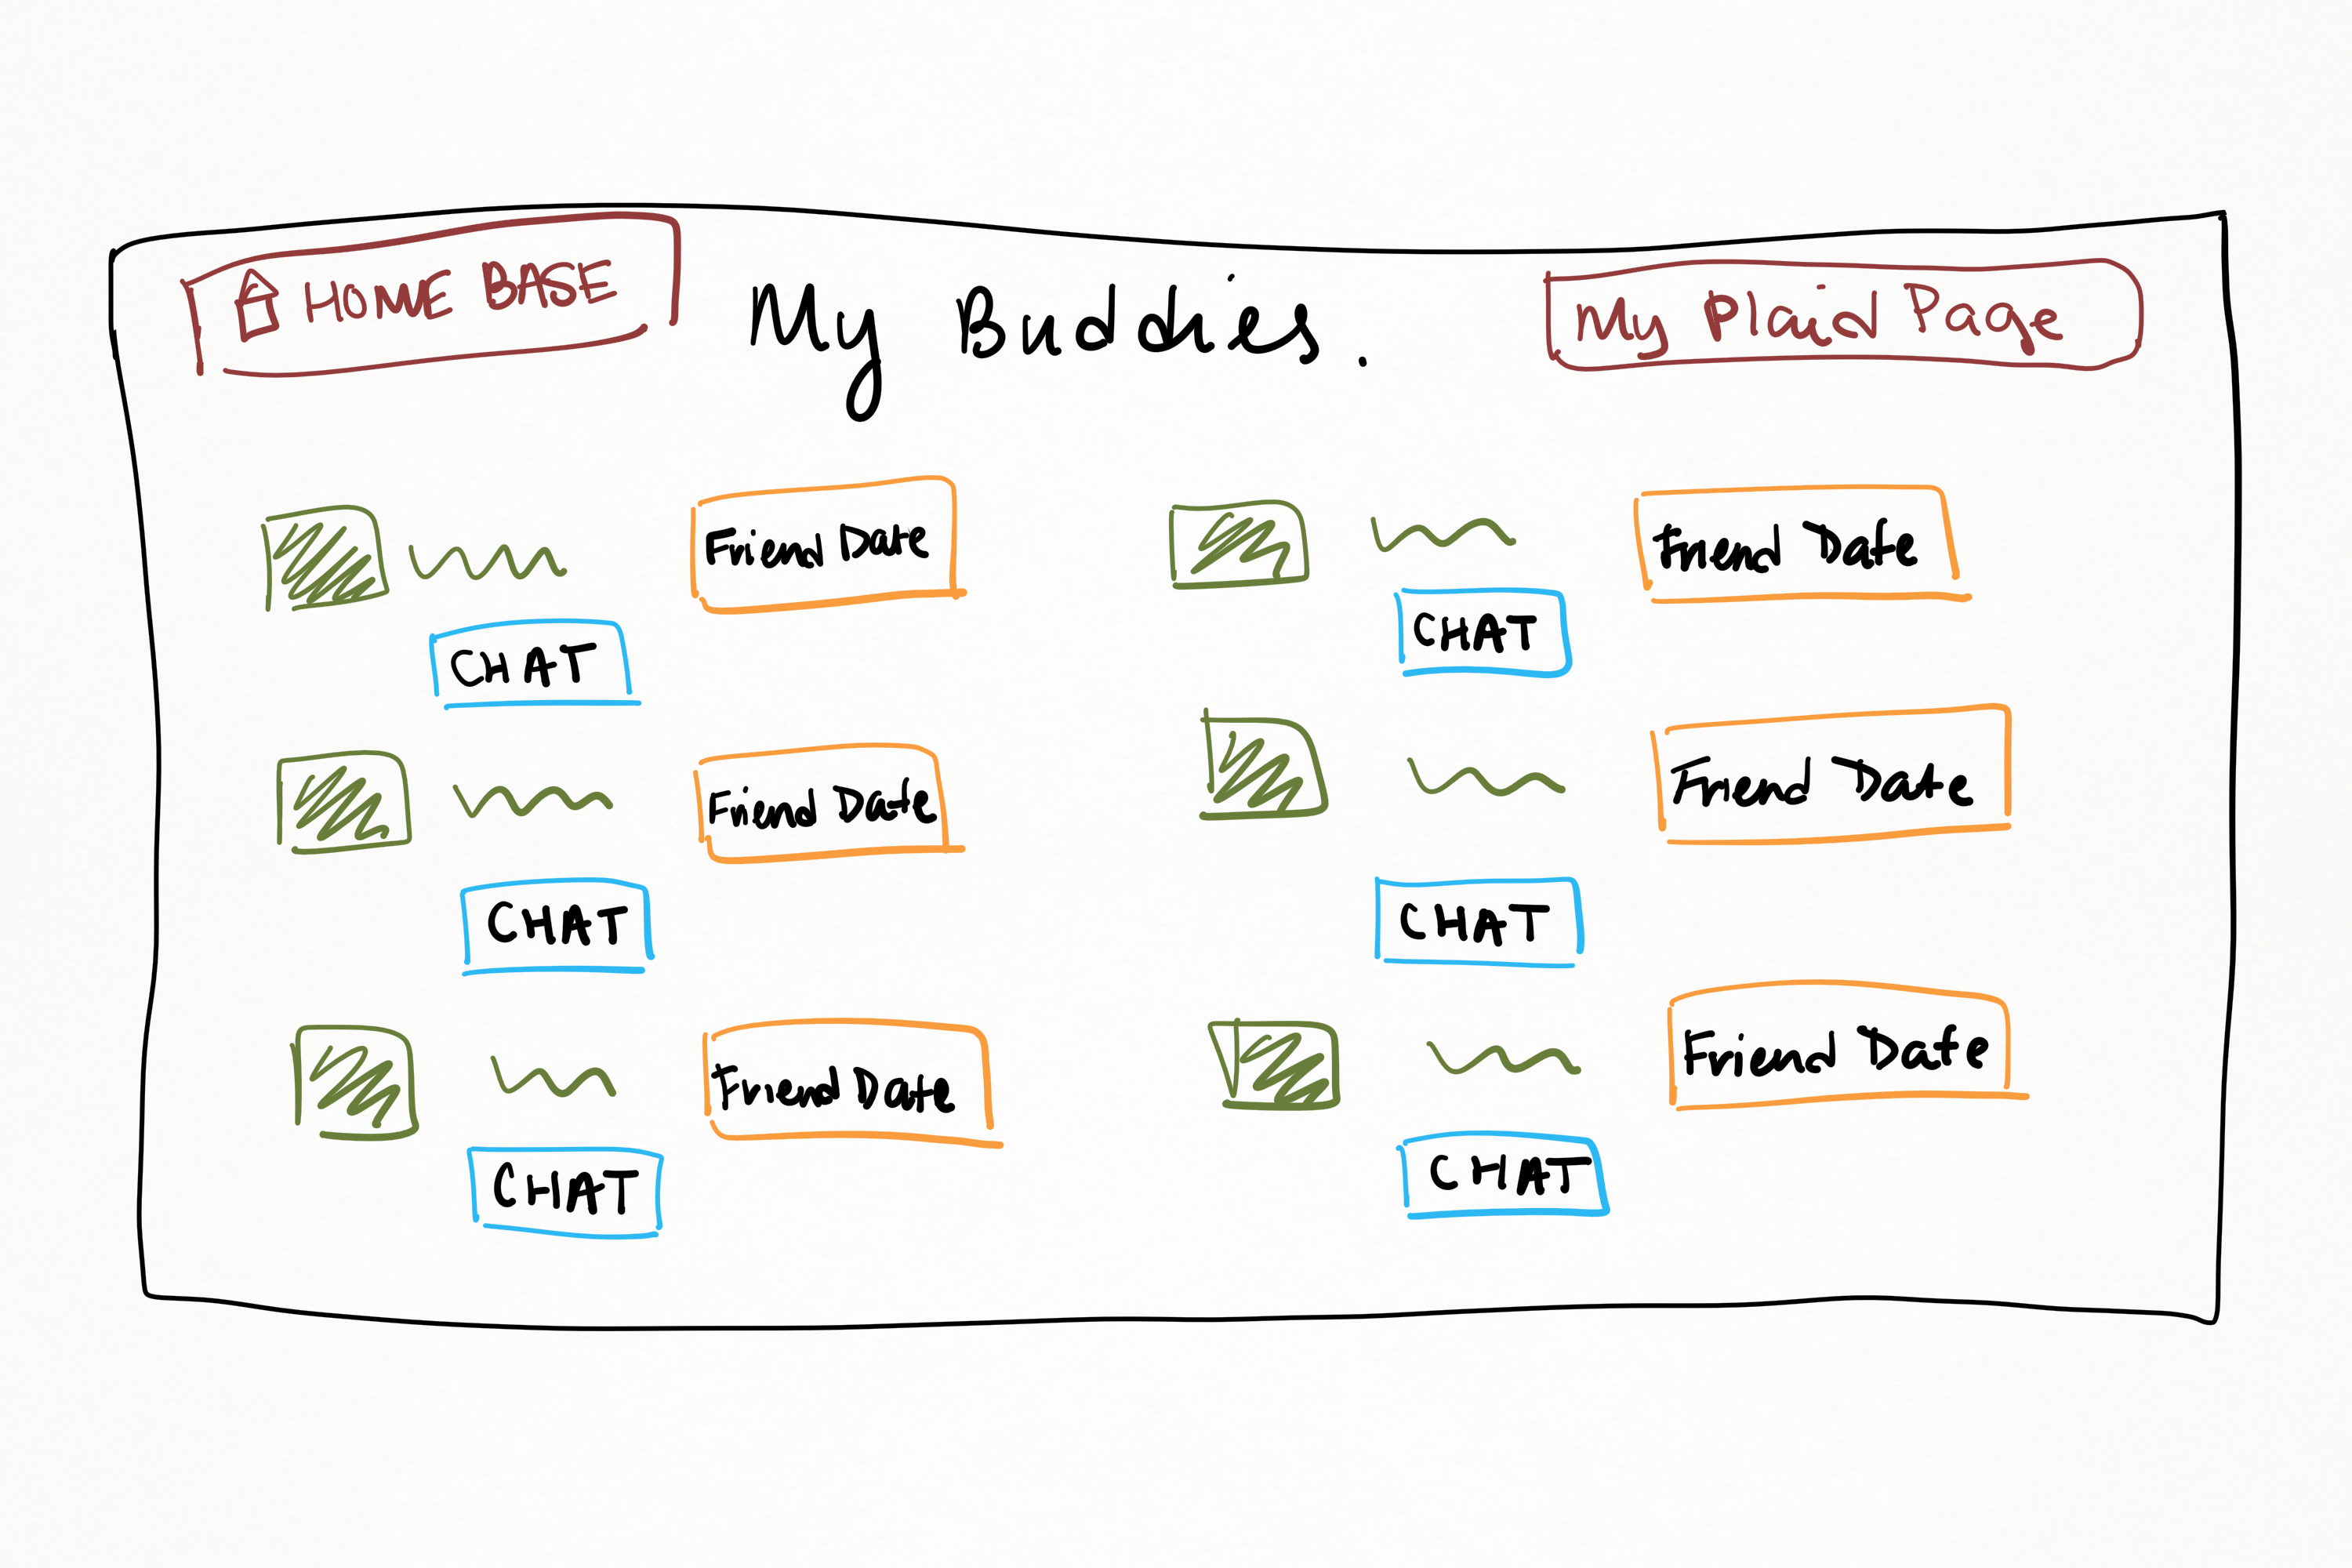 HOME BASE
My Buddies.
My Plaid Page
Friend Date
CHAT
Friend Date
CHAT
Friend Date
CHAT
Friend Date
CHAT
Friend Date
CHAT
Friend Date
CHAT